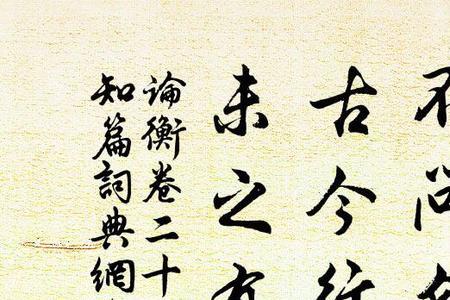 不问
古今行
未之有
論衡卷二十
知篇詞典網